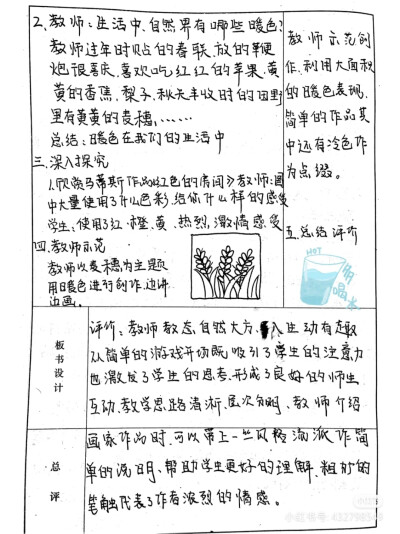 2、教师:生活中、自然界有哪些暖色?
教师过年时贴的春联、放的鞭
炮很喜庆、喜欢吃红红的苹果、黄
黄的香蕉、梨子、秋天丰收时的田野
里有黄黄的麦穗、……
总结:暖色在我们的生活中
三、深入探究
1、欣赏马蒂斯作品《红色的房间》教师:画
中大量使用了什么色彩,给你什么样的感受
学生:使用了红、橙、黄、热烈、激情感受
四、教师示范
教师以麦穗为主题
用暖色进行创作、边讲
边画。
教师示范创
作、利用大面积
的暖色表现,
简单的作品其
中还有冷色作
为点缀。
五、总结评价
HOT
多喝水
板书设计
评价:教师教态自然大方、导入生动有趣
从简单的游戏开场既吸引了学生的注意力
也激发了学生的思考、形成了良好的师生
互动、教学思路清晰、层次分明、教师介绍
总评
画家作品时,可以带上一些风格流派作简
单的说明、帮助学生更好的理解、粗犷的
笔触代表了作者浓烈的情感。